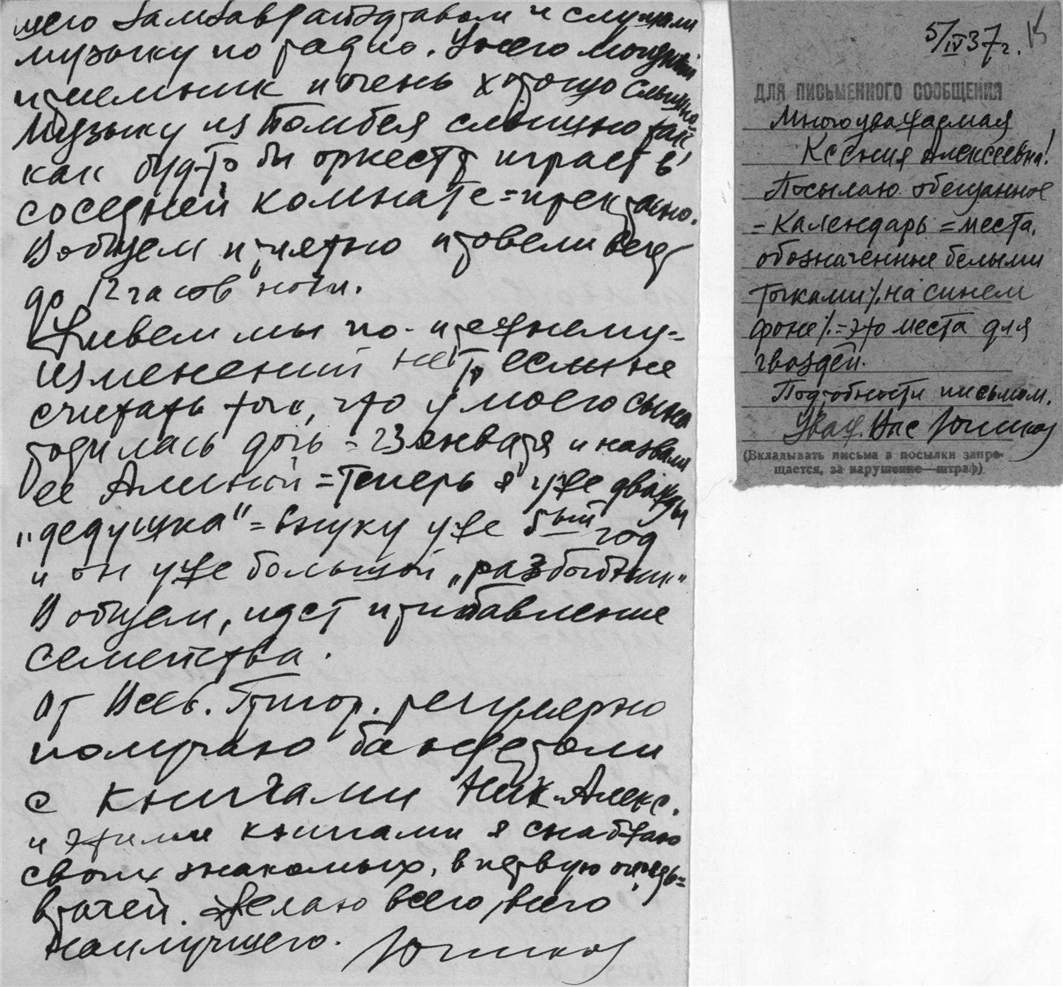 шего Замзаврайздравом и слушали
музыку по радио. У него мощный
приемник и очень хорошо слышно –
музыку из Бомбея слышно так
как будто бы оркестр играет в
соседней комнате = прекрасно.
В общем приятно провели вечер
до 12 часов ночи.
Живем мы по-прежнему –
изменений нет, если не
считать того, что у моего сына
родилась дочь = 23 января и назвали
ее Алиной = теперь я уже дважды
„дедушка“ = внуку уже был год
и он уже большой „разбойник“
В общем, идет прибавление
семейства.
От Всев. Григор. регулярно
получаю бандероли
с книгами Ник. Алекс.
и этими книгами я снабжаю
своих знакомых, в первую очередь =
врачей. Желаю всего, всего
наилучшего. Юшков
5/IV 37 г.
ДЛЯ ПИСЬМЕННОГО СООБЩЕНИЯ
Многоуважаемая
Ксения Алексеевна!
Посылаю обещанное
= календарь = места,
обозначенные белыми
точками /. на синем
фоне /. = это места для
гвоздей.
Подробности письмом.
Уваж. Вас Юшков
(Вкладывать письма в посылки запре-
щается, за нарушение—штраф)